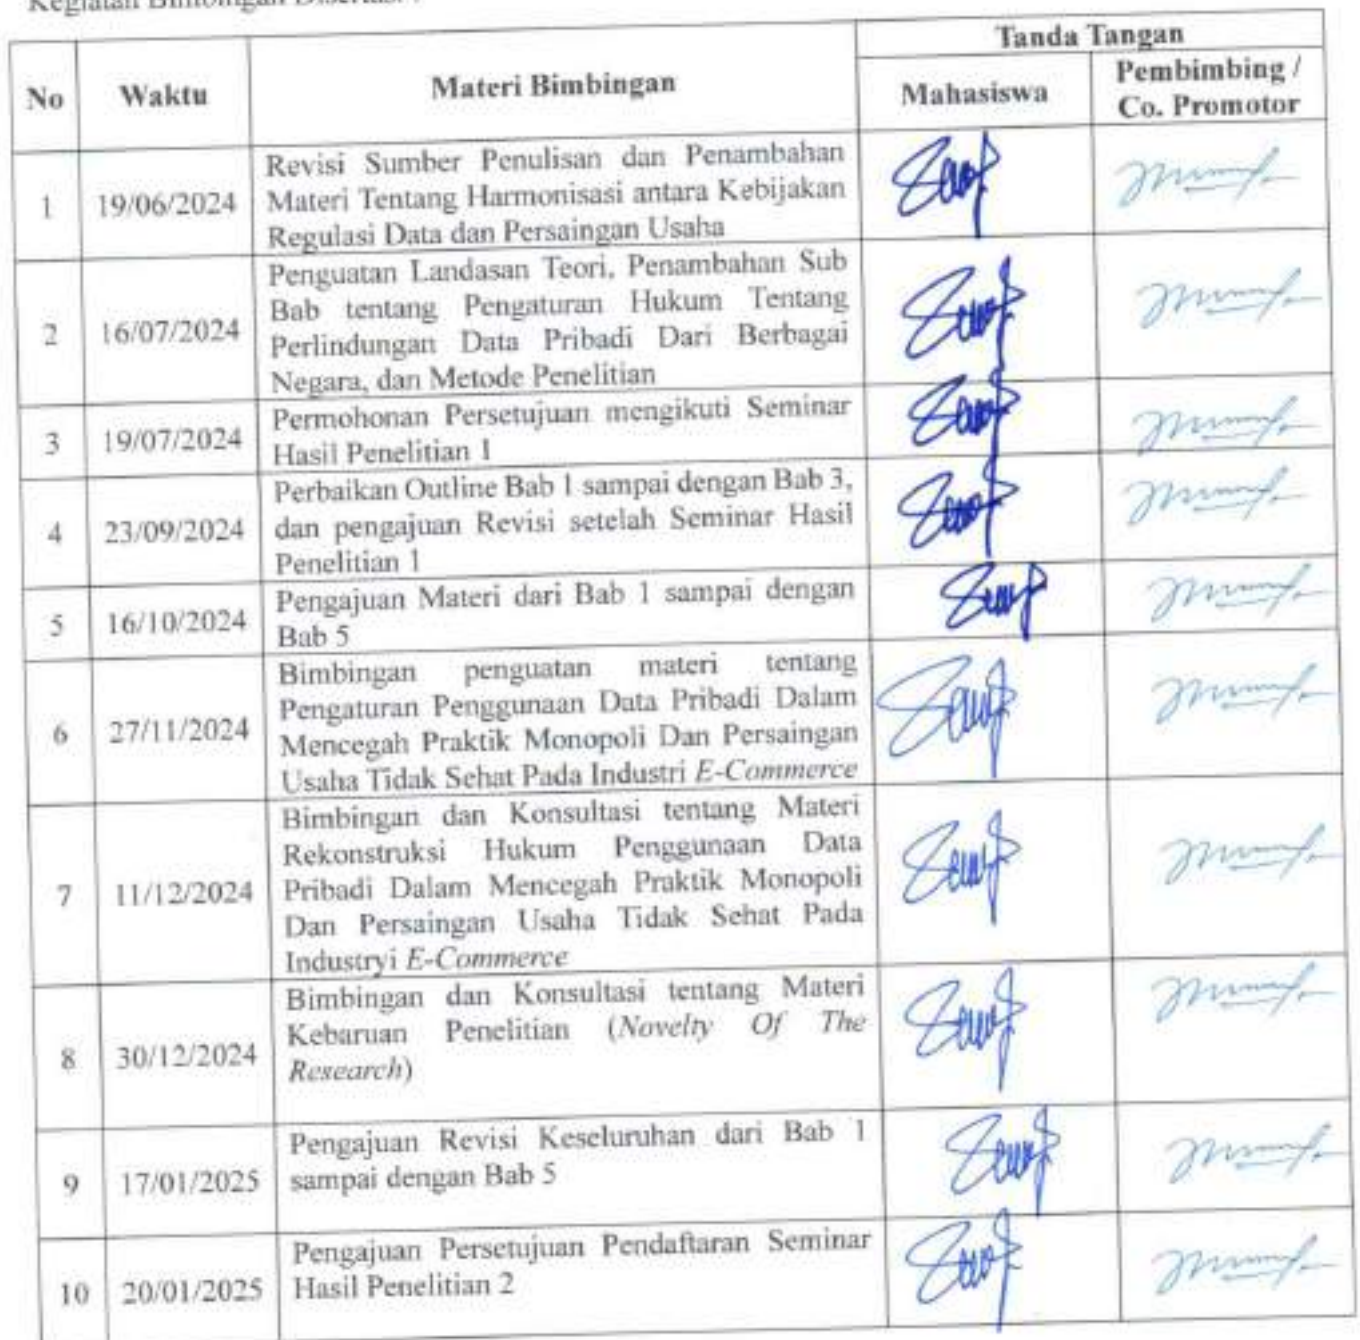 Kegiatan Bimbingan Disertasi :
No
Waktu
Materi Bimbingan
Tanda Tangan
Mahasiswa
Pembimbing /
Co. Promotor
1
19/06/2024
Revisi Sumber Penulisan dan Penambahan
Materi Tentang Harmonisasi antara Kebijakan
Regulasi Data dan Persaingan Usaha
2
16/07/2024
Penguatan Landasan Teori, Penambahan Sub
Bab tentang Pengaturan Hukum Tentang
Perlindungan Data Pribadi Dari Berbagai
Negara, dan Metode Penelitian
3
19/07/2024
Permohonan Persetujuan mengikuti Seminar
Hasil Penelitian 1
4
23/09/2024
Perbaikan Outline Bab 1 sampai dengan Bab 3,
dan pengajuan Revisi setelah Seminar Hasil
Penelitian 1
5
16/10/2024
Pengajuan Materi dari Bab 1 sampai dengan
Bab 5
6
27/11/2024
Bimbingan penguatan materi tentang
Pengaturan Penggunaan Data Pribadi Dalam
Mencegah Praktik Monopoli Dan Persaingan
Usaha Tidak Sehat Pada Industri E-Commerce
7
11/12/2024
Bimbingan dan Konsultasi tentang Materi
Rekonstruksi Hukum Penggunaan Data
Pribadi Dalam Mencegah Praktik Monopoli
Dan Persaingan Usaha Tidak Sehat Pada
Industryi E-Commerce
8
30/12/2024
Bimbingan dan Konsultasi tentang Materi
Kebaruan Penelitian (Novelty Of The
Research)
9
17/01/2025
Pengajuan Revisi Keseluruhan dari Bab 1
sampai dengan Bab 5
10
20/01/2025
Pengajuan Persetujuan Pendaftaran Seminar
Hasil Penelitian 2